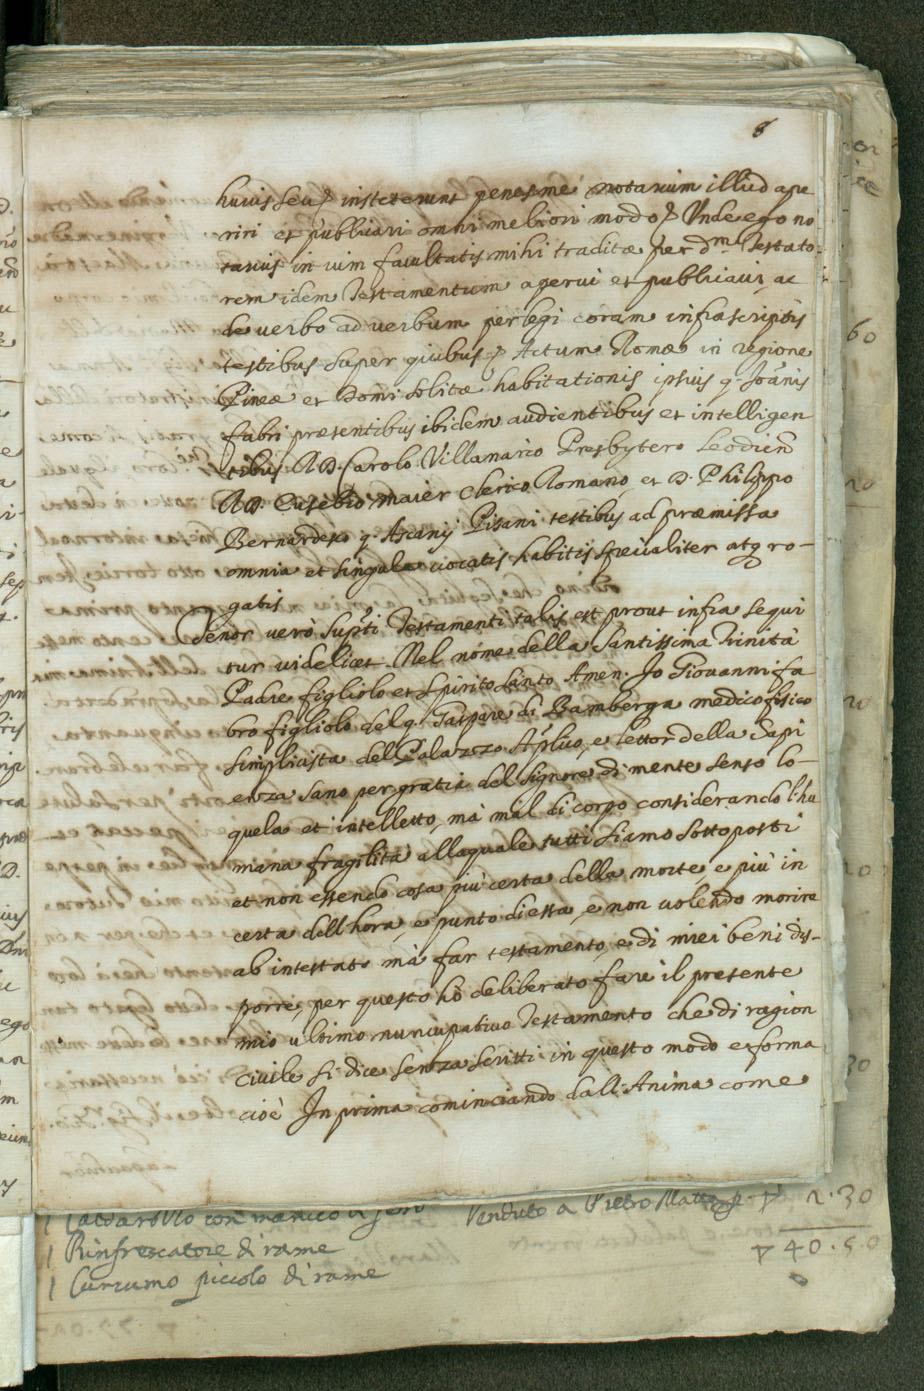 8
huius seu p insteterunt penes me notarium illud ape
riri et publicari omni meliori modo p Unde ego no
tarius in uim facultatis mihi traditæ per dm Testato
rem idem Testamentum aperui et publicaui, ac
de uerbo ad uerbum perlegi coram infrascriptis
testibus super quibus p Actum Romæ in regione
Pineæ et Domi solitæ habitationis ipsius q Joãnis
fabri præsentibus ibidem audientibus et intelligen
tibus R D. Carolo Villanario Presbytero Leodien
R D. Eusebio maier Clerico Romano, et D. Philippo
Bernardesco q. Ascanij Pisani testibus ad præmissa
omnia et singula uocatis habitis specialiter atq ro-
gatis
Tenor uerò supti Testamenti talis est prout infra sequi
tur uidelicet. Nel nome della Santissima Trinità
Padre figliolo et Spirito Santo Amen. Io Giovanni fa
bro figliolo del q. Gaspare di Bamberga medico fisico
simplicista del Palazzo Aplico, e lettor della Sapi
enza sano per gratia del Signore di mente senso lo-
quela et intelletto, mà mal di corpo considerando l'hu
mana fragilità alla quale tutti siamo sottoposti
et non essendo cosa più certa della morte e più in
certa dell'hora, e punto di essa, e non uolendo morire
ab intestato mà far testamento, e di miei beni dis-
porre, per questo hò deliberato fare il presente
mio ultimo nuncupatiuo Testamento che di ragion
ciuile si dice senza scritti in questo modo e forma
cioè In prima cominciando dall'Anima come
con manico di Venduto a Pietro 2.30
1 Rinfrescatore di rame 40.50
1 piccolo di rame